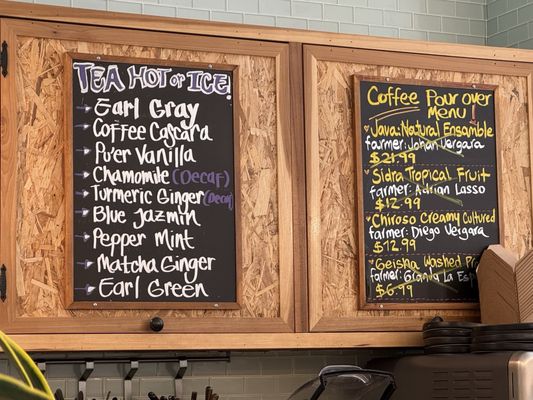 TEA HOT or ICE!
Earl Gray
Coffee Cascara
Pu'er Vanilla
Chamomile (Decaf)
Turmeric Ginger (Decaf)
Blue Jazmin
Pepper Mint
Matcha Ginger
Earl Green
Coffee Pour over
Menu!
Java: Natural Ensemble
farmer: Johan Vergara
$21.99
Sidra Tropical Fruit
farmer: Adrian Lasso
$12.99
Chiroso Creamy Cultured
farmer: Diego Vergara
$12.99
Geisha Washed
farmer: Granda La
$6.99